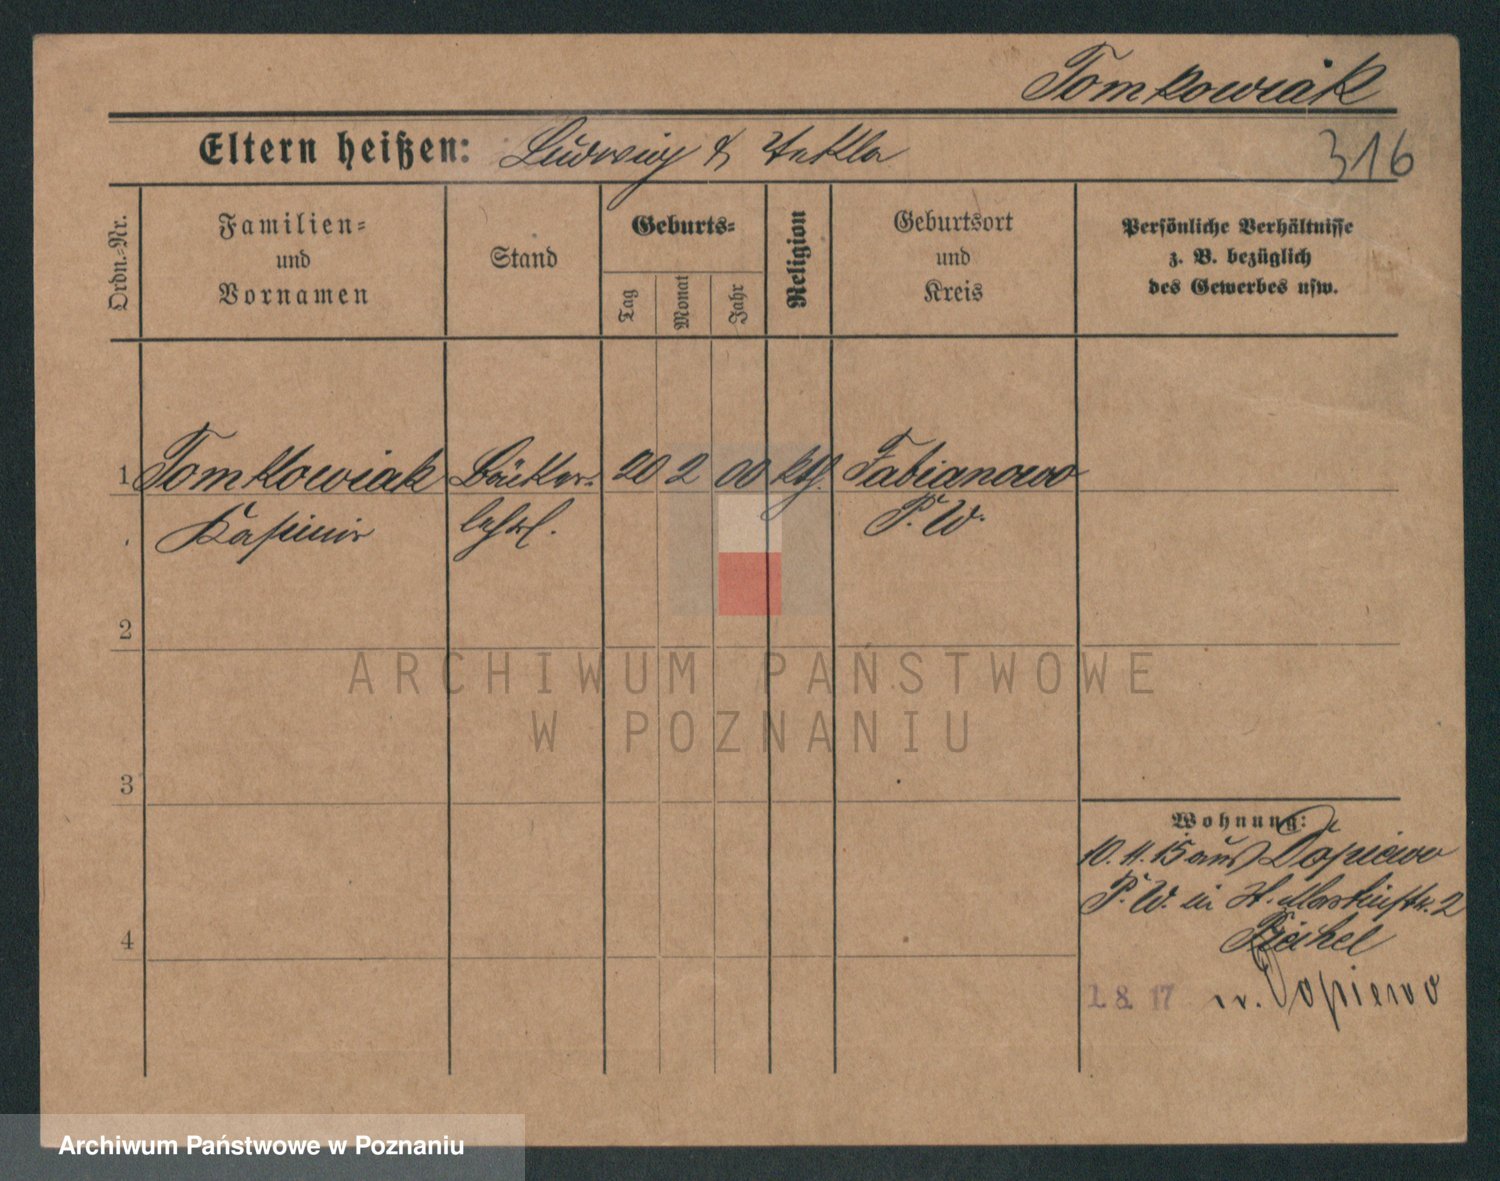 Tomkowiak
Eltern heißen: Ludwig & Thekla
316
Ordn.-Nr.
Familien-
und
Vornamen
Stand
Geburts-
Tag
Monat
Jahr
Religion
Geburtsort
und
Kreis
Persönliche Verhältnisse
z. B. bezüglich
des Gewerbes usw.
1 Tomkowiak Bäcker- 20 2 00 kth. Fabianowo
Kasimir lehrl. P. W.
2
ARCHIWUM PAŃSTWOWE
W POZNANIU
3
Wohnung:
10. 11. 15 aus Dopiewo
P. W. in H. 2
4
1. 8. 17 n. Dopiewo
Archiwum Państwowe w Poznaniu